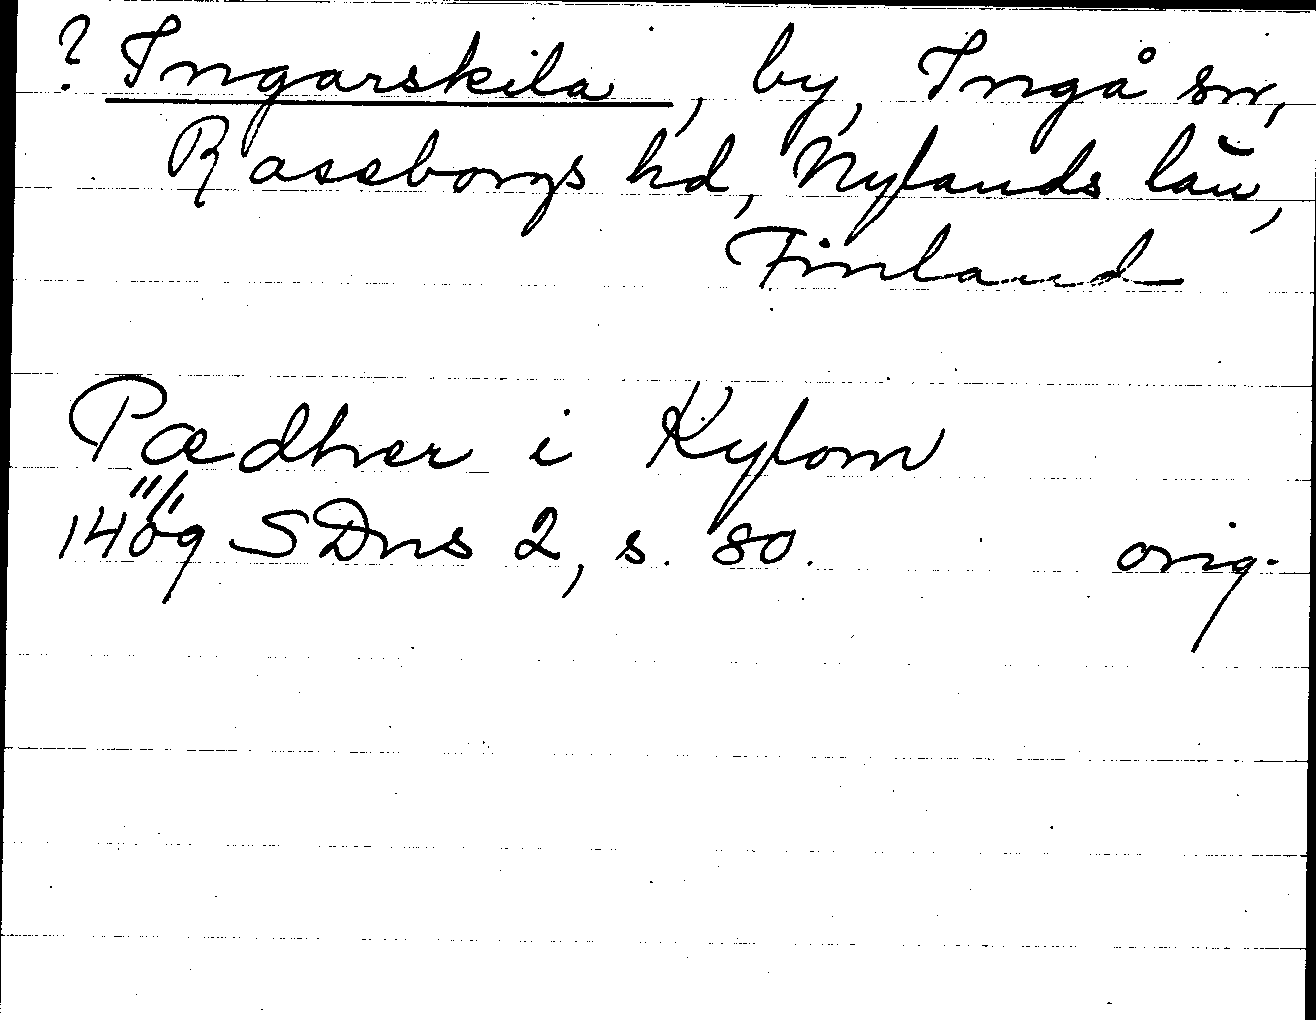 ? Ingarskila, by, Ingå sn,
Raseborgs hd, Nylands län,
Finland
Pædher i Kylom
11/1
1409 SDns 2, s. 80. orig.